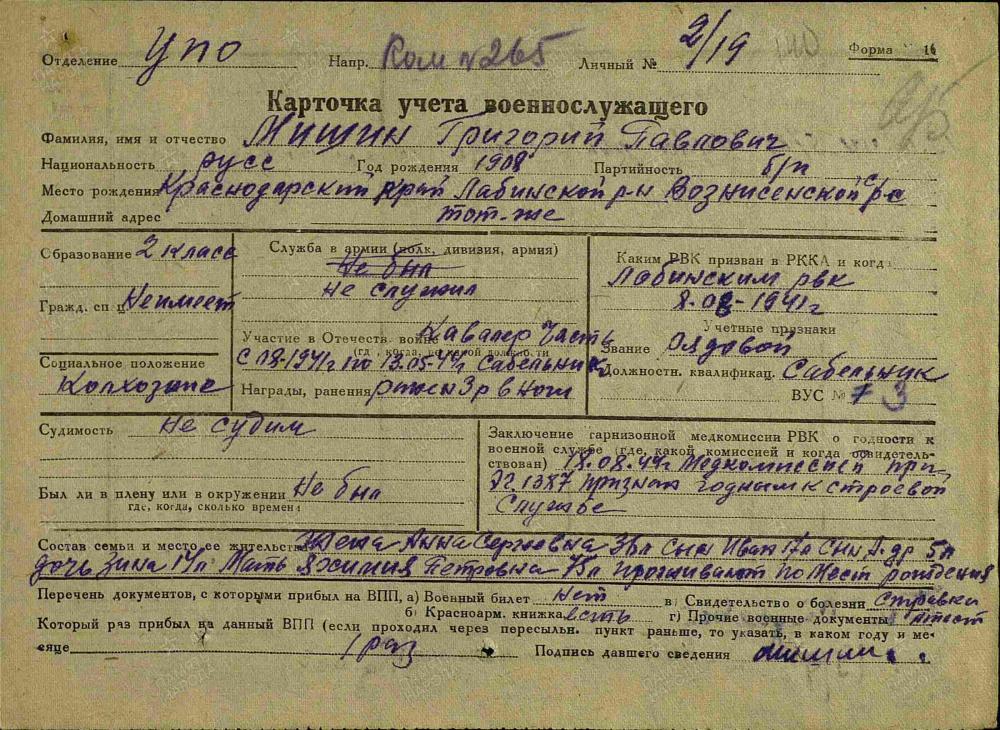 Отделение упо Напр. Ком №265 Личный № 2/19 Форма 16
Карточка учета военнослужащего
Фамилия, имя и отчество Мишин Григорий Павлович
Национальность русс Год рождения 1908 Партийность б/п
Место рождения Краснодарский край Лабинской р-н Вознисенской
Домашний адрес тот-же
Образование 2 класса
Гражд. сп Неимеет
Социальное положение
Колхозник
Служба в армии (полк, дивизия, армия)
Не был
Не служил
Участие в Отечеств. войне Кавалер Часть
(где, когда, в какой должности
с 08-1941г по 13.05-44г Сабельник
Награды, ранения
Каким РВК призван в РККА и когда
Лабинским рвк
8.08-1941г
Учетные признаки
Звание Рядовой
Должностн. квалификац. Сабельник
ВУС № 3
Судимость Не судим
Был ли в плену или в окружении Не был
где, когда, сколько времени
Заключение гарнизонной медкомиссии РВК о годности к
военной службе (где, какой комиссией и когда освидетель-
ствован) 18.08.44г Медкомиссией при
ЭГ.1387 признан годным к строевой
Службе
Состав семьи и место ее жительства Жена Анна Сергеевна Сын Иван Сын 5л
дочь Зина Мать Петровна проживают по Мест рождения
Перечень документов, с которыми прибыл на ВПП, а) Военный билет нет в) Свидетельство о болезни справки
б) Красноарм. книжка есть г) Прочие военные документы атест
Который раз прибыл на данный ВПП (если проходил через пересыльн. пункт раньше, то указать, в каком году и ме-
сяце 1 раз Подпись давшего сведения Мишин